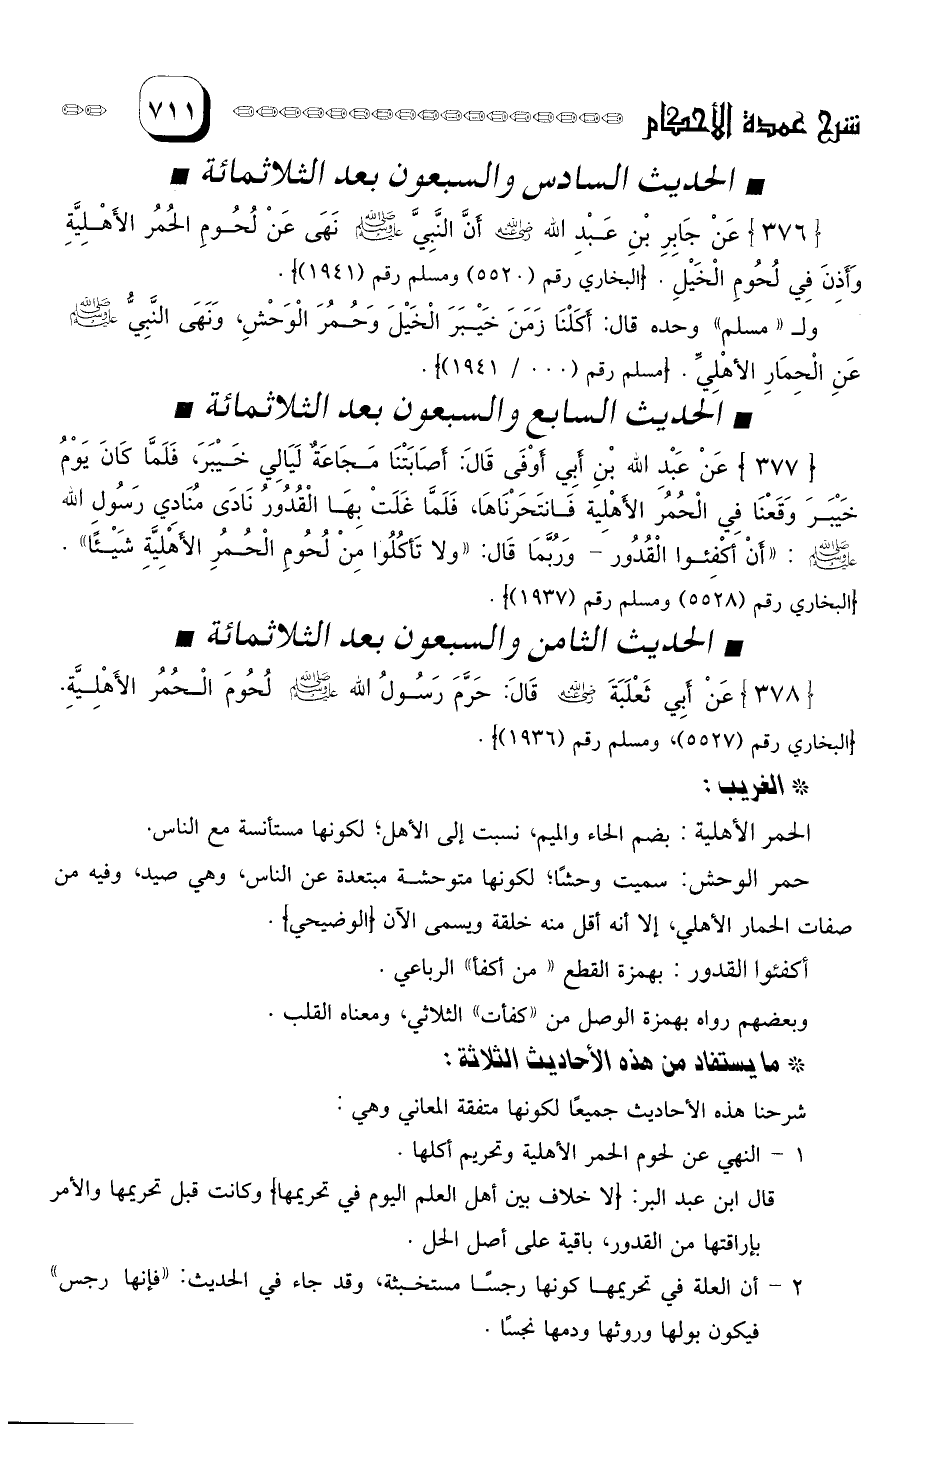 شرح عمدة الأحكام ٧١١
■ الحديث السادس والسبعون بعد الثلاثمائة ■
{٣٧٦} عَنْ جَابِرِ بْنِ عَبْدِ الله ﵁ أَنَّ النَّبِيَّ ﷺ نَهَى عَنْ لُحُومِ الْحُمُرِ الأَهْلِيَّةِ
وَأَذِنَ فِي لُحُومِ الْخَيْلِ . {البخاري رقم (٥٥٢٠) ومسلم رقم (١٩٤١)} .
ولـ « مسلم» وحده قال: أَكَلْنَا زَمَنَ خَيْبَرَ الْخَيْلَ وَحُمُرَ الْوَحْشِ، وَنَهَى النَّبِيُّ ﷺ
عَنِ الْحِمَارِ الأَهْلِيِّ . {مسلم رقم (٠٠٠ / ١٩٤١)} .
■ الحديث السابع والسبعون بعد الثلاثمائة ■
{٣٧٧} عَنْ عَبْدِ الله بْنِ أَبِي أَوْفَى قَالَ: أَصَابَتْنَا مَجَاعَةٌ لَيَالِيَ خَيْبَرَ، فَلَمَّا كَانَ يَوْمُ
خَيْبَرَ وَقَعْنَا فِي الْحُمُرِ الأَهْلِيةِ فَانتَحَرْنَاهَا، فَلَمَّا غَلَتْ بِهَا الْقُدُورُ نَادَى مُنَادِي رَسُولِ الله
ﷺ : «أَنْ أَكْفِئُوا الْقُدُورَ – وَرُبَّمَا قَالَ: «ولا تَأكُلُوا مِنْ لُحُومِ الْحُمُرِ الأَهْلِيَّةِ شَيْئًا» .
{البخاري رقم (٥٥٢٨) ومسلم رقم (١٩٣٧)} .
■ الحديث الثامن والسبعون بعد الثلاثمائة ■
{٣٧٨} عَنْ أَبِي ثَعْلَبَةَ ﵁ قَالَ: حَرَّمَ رَسُولُ الله ﷺ لُحُومَ الْحُمُرِ الأَهْلِيَّةِ.
{البخاري رقم (٥٥٢٧)، ومسلم رقم (١٩٣٦)} .
* الغريب :
الحمر الأهلية : بضم الحاء والميم، نسبت إلى الأهل؛ لكونها مستأنسة مع الناس.
حمر الوحش: سميت وحشًا؛ لكونها متوحشة مبتعدة عن الناس، وهي صيد، وفيه من
صفات الحمار الأهلي، إلا أنه أقل منه خلقة ويسمى الآن {الوضيحي} .
أكفئوا القدور : بهمزة القطع « من أكفأ» الرباعي .
وبعضهم رواه بهمزة الوصل من «كفأت» الثلاثي، ومعناه القلب .
* ما يستفاد من هذه الأحاديث الثلاثة :
شرحنا هذه الأحاديث جميعًا لكونها متفقة المعاني وهي :
١ – النهي عن لحوم الحمر الأهلية وتحريم أكلها .
قال ابن عبد البر: {لا خلاف بين أهل العلم اليوم في تحريمها} وكانت قبل تحريمها والأمر
بإراقتها من القدور، باقية على أصل الحل .
٢ – أن العلة في تحريمها كونها رجسًا مستخبثة، وقد جاء في الحديث: «فإنها رجس»
فيكون بولها وروثها ودمها نجسًا .